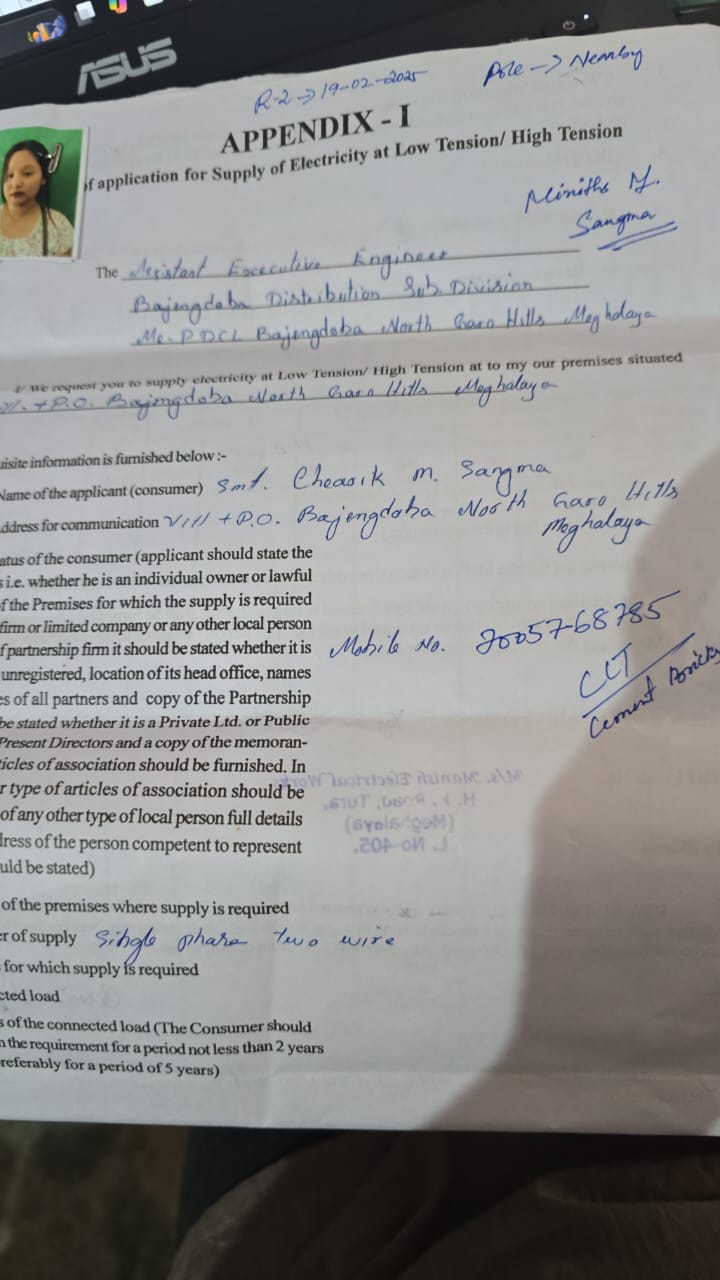 ASUS
R-2 → 19-02-2025
Pole → Nearby
APPENDIX - I
of application for Supply of Electricity at Low Tension/ High Tension
M.
Sangma
The Assistant Executive Engineer
Bajengdoba Distribution Sub Division
Me.PDCL Bajengdoba North Garo Hills Meghalaya
I/ We request you to supply electricity at Low Tension/ High Tension at to my our premises situated
+P.O. Bajengdoba North Garo Hills Meghalaya
uisite information is furnished below :-
Name of the applicant (consumer) Smt. Chearik M. Sangma
ddress for communication Vill + P.O. Bajengdoba North Garo Hills
Meghalaya
atus of the consumer (applicant should state the
s i.e. whether he is an individual owner or lawful
f the Premises for which the supply is required
firm or limited company or any other local person
f partnership firm it should be stated whether it is
Mobile No. 70057-68785
unregistered, location of its head office, names
CCT
es of all partners and copy of the Partnership
Cement Bricks
be stated whether it is a Private Ltd. or Public
Present Directors and a copy of the memoran-
ticles of association should be furnished. In
r type of articles of association should be
of any other type of local person full details
dress of the person competent to represent
uld be stated)
M/s. Electrical
Road, Tura.
(Meghalaya)
L. No-405.
of the premises where supply is required
er of supply Single phase two wire
for which supply is required
cted load
s of the connected load (The Consumer should
n the requirement for a period not less than 2 years
referably for a period of 5 years)